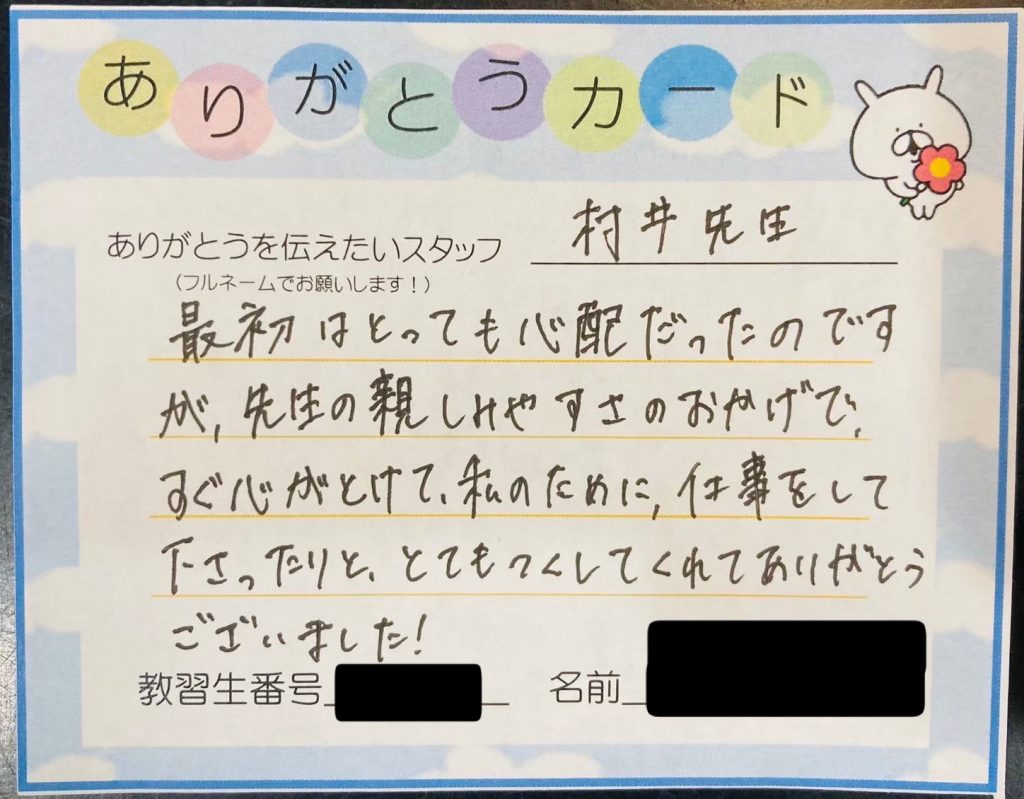 ありがとうカード
ありがとうを伝えたいスタッフ 村井先生
(フルネームでお願いします！)
最初はとっても心配だったのです
が、先生の親しみやすさのおかげで、
すぐ心がとけて、私のために、仕事をして
下さったりと、とてもつくしてくれてありがとう
ございました!
教習生番号 名前